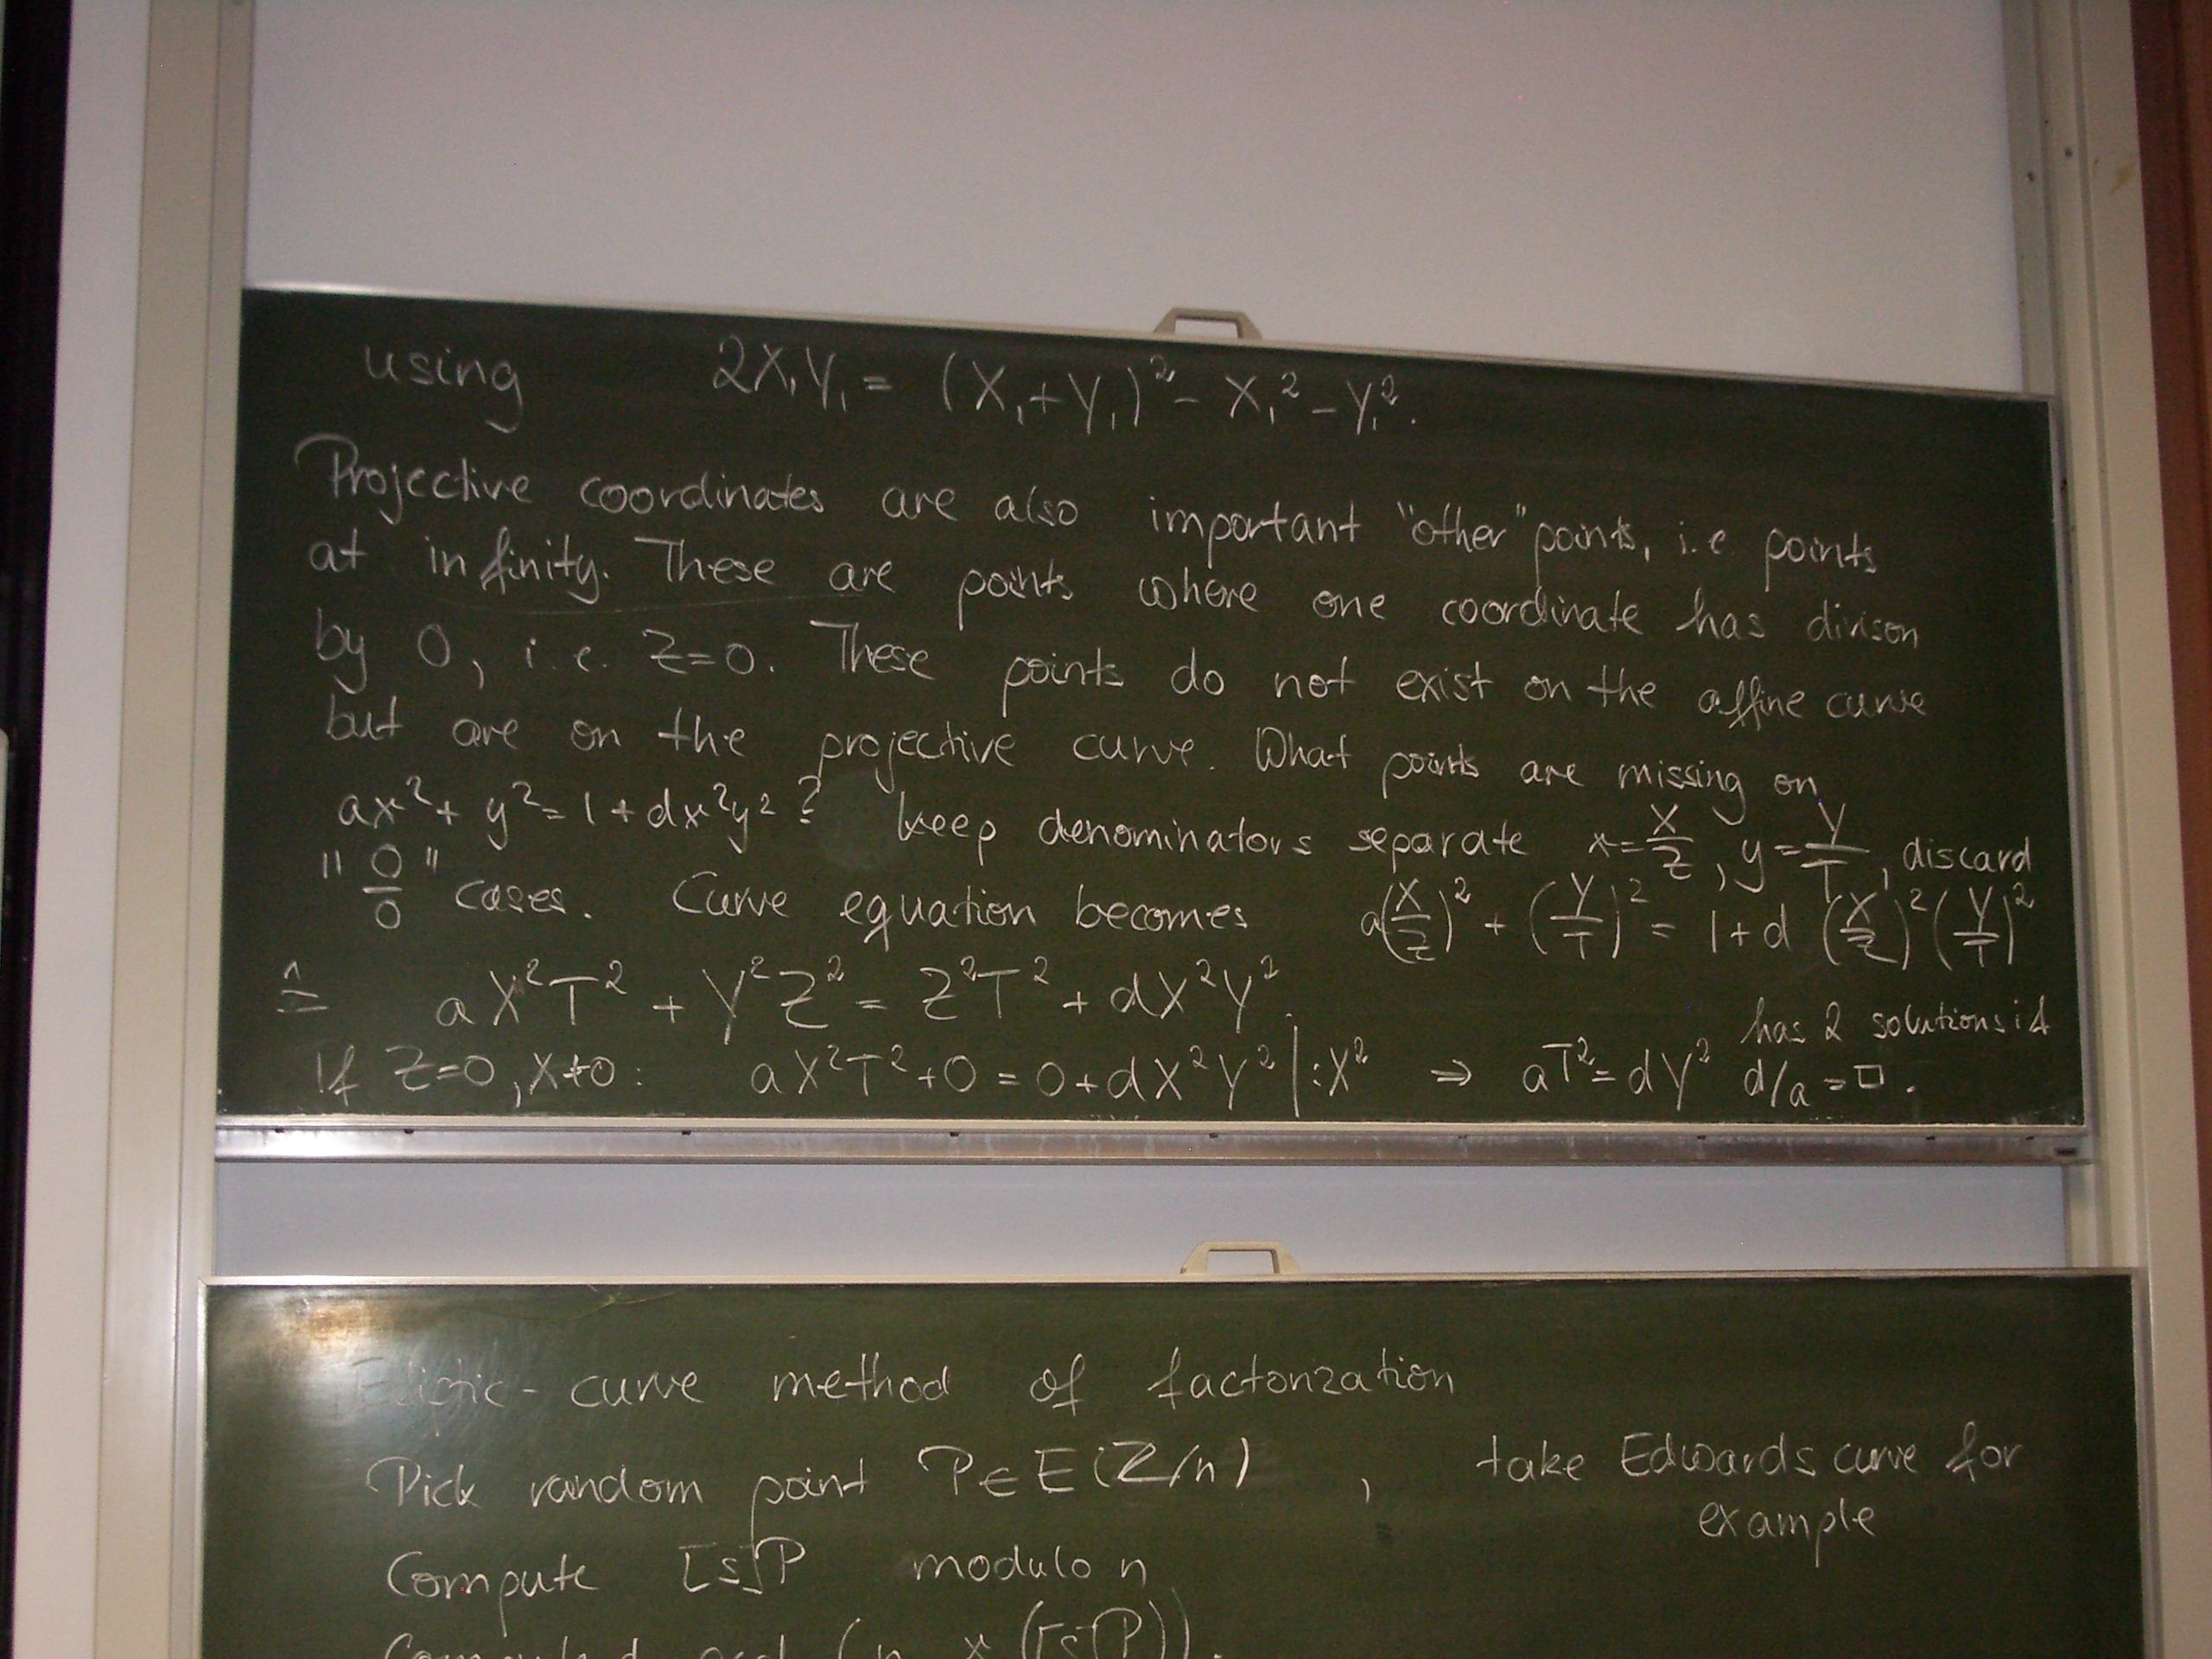 using 2X₁Y₁ = (X₁+Y₁)² - X₁² - Y₁².
Projective coordinates are also important "other" points, i.e. points
at infinity. These are points where one coordinate has divison
by 0, i.e. Z=0. These points do not exist on the affine curve
but are on the projective curve. What points are missing on
ax² + y² = 1 + dx²y² ? keep denominators separate x = X/Z, y = Y/T, discard
"0/0" cases. Curve equation becomes a(X/Z)² + (Y/T)² = 1 + d (X/Z)² (Y/T)²
≙ aX²T² + Y²Z² = Z²T² + dX²Y².
If Z=0, X≠0: aX²T² + 0 = 0 + dX²Y² |:X² ⇒ aT² = dY² has 2 solutions if d/a = □.
Eliptic-curve method of factorization
Pick random point P∈E(Z/n) , take Edwards curve for
example
Compute [s]P modulo n
gcd (n, x([s]P)).